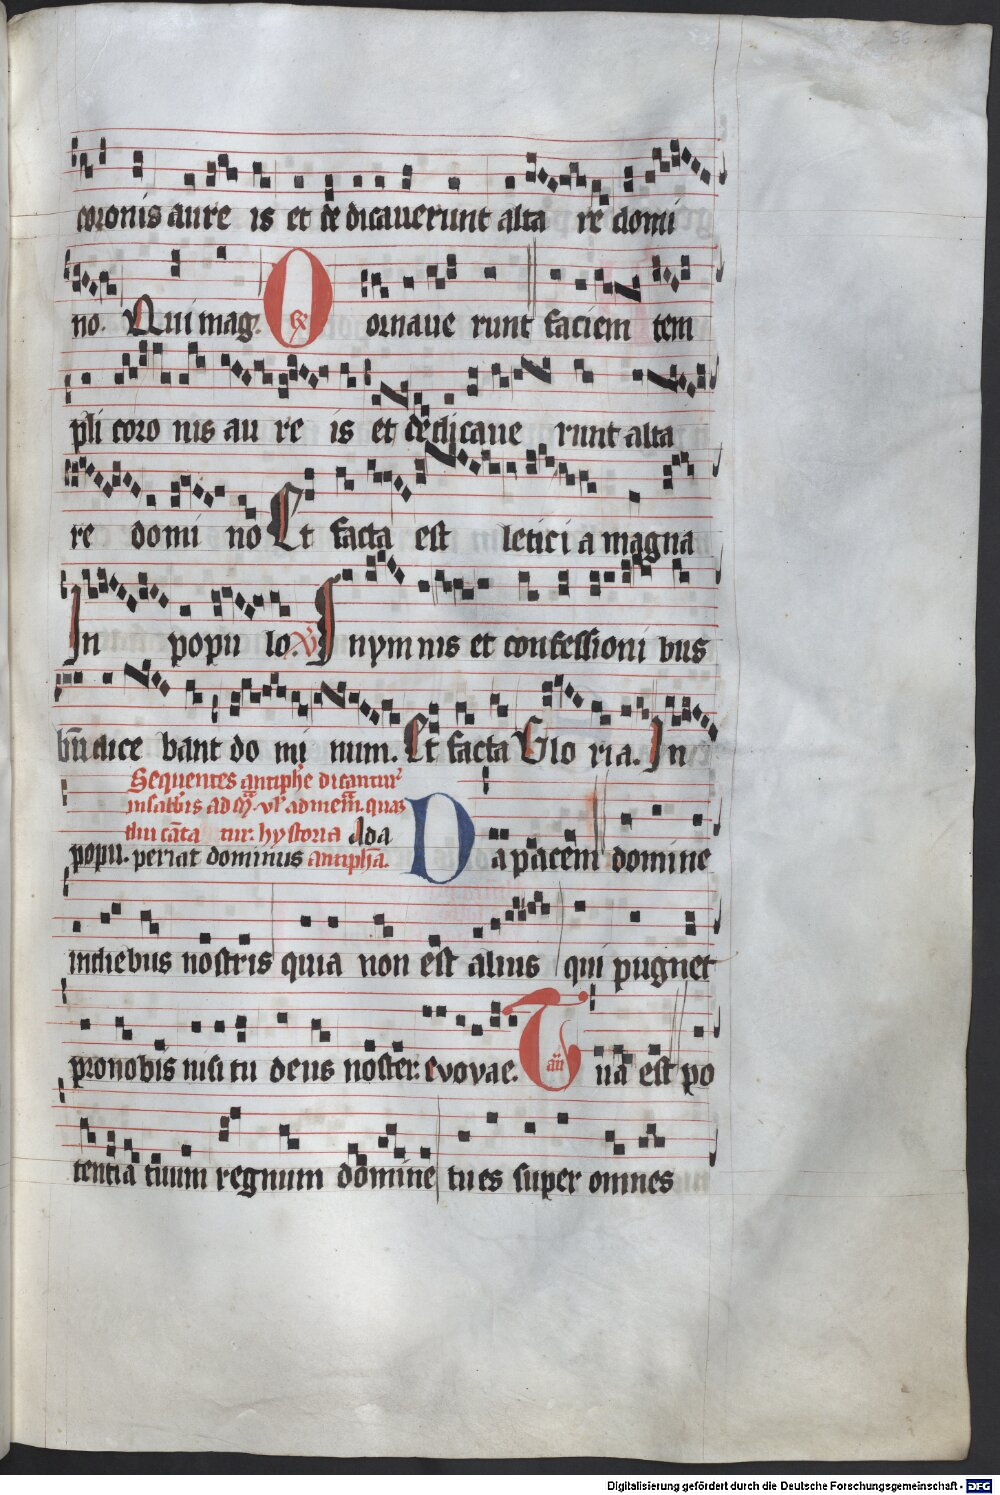 56
coronis aure is et de dicauerunt alta re domi
no. Qui mag. O R ornaue runt faciem tem
pli coro nis au re is et dedicaue runt alta
re domi no Et facta est letici a magna
In popu lo. V In ymnis et confessioni bus
bn̄dice bant do mi num. Et facta Glo ria. In
Sequentes antiphe dicantur
in sabbis ad mͣ. vl' ad mem. quan
diu cāta tur. hystoria Ada
popu. periat dominus antipha. D a pacem domine
in diebus nostris quia non est alius qui pugnet
pro nobis nisi tu deus noster. evovae. T añ ua est po
tentia tuum regnum domine tu es super omnes
Digitalisierung gefördert durch die Deutsche Forschungsgemeinschaft - DFG